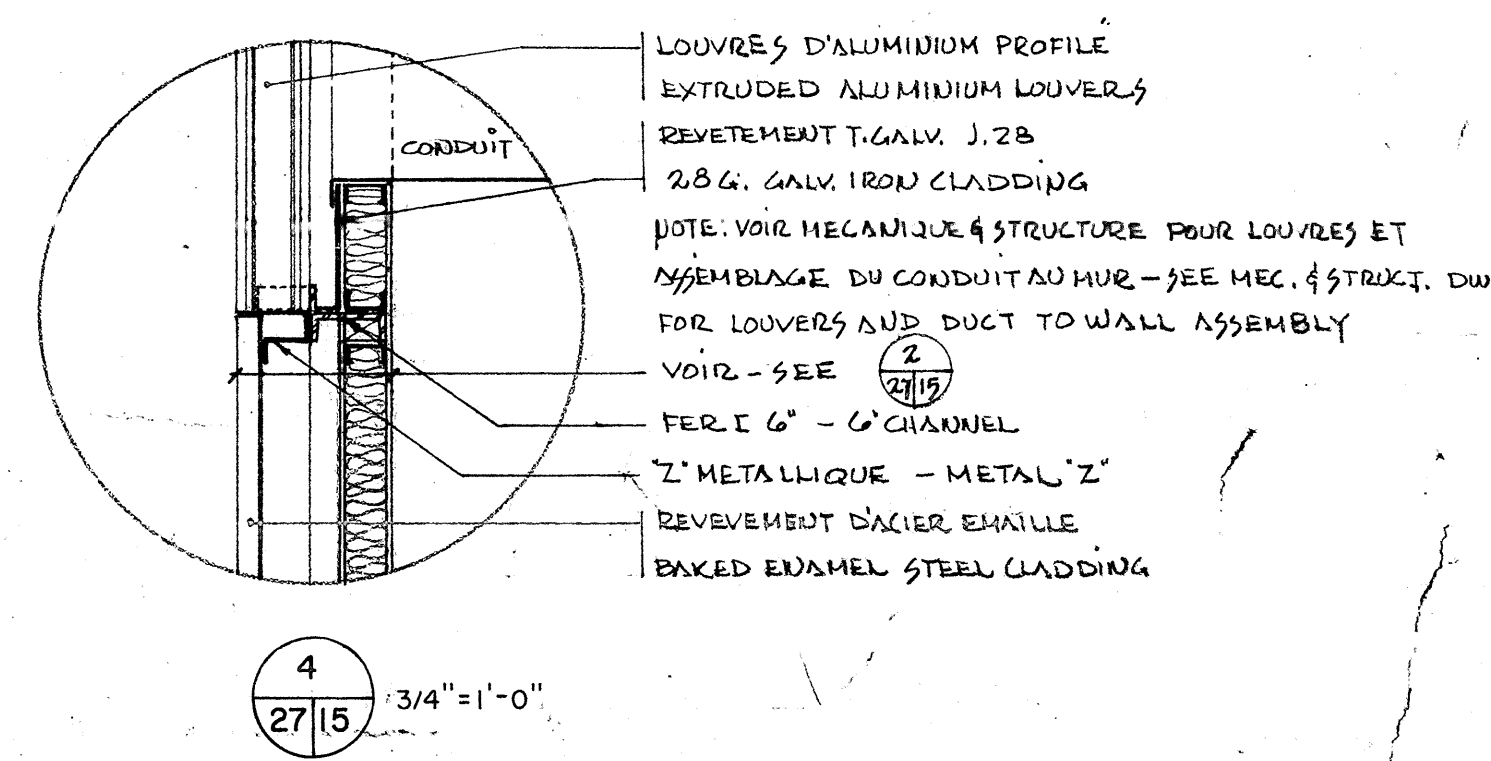 LOUVRES D'ALUMINIUM PROFILÉ
EXTRUDED ALUMINIUM LOUVERS
CONDUIT
REVETEMENT T.GALV. J.28
28 G. GALV. IRON CLADDING
NOTE: VOIR MECANIQUE & STRUCTURE POUR LOUVRES ET
ASSEMBLAGE DU CONDUIT AU MUR - SEE MEC. & STRUCT. DW
FOR LOUVERS AND DUCT TO WALL ASSEMBLY
VOIR - SEE 2
27 15
FER [ 6" - 6" CHANNEL
"Z" METALLIQUE - METAL "Z"
REVEVEMENT D'ACIER EMAILLE
BAKED ENAMEL STEEL CLADDING
4
27 15
3/4"=1'-0"